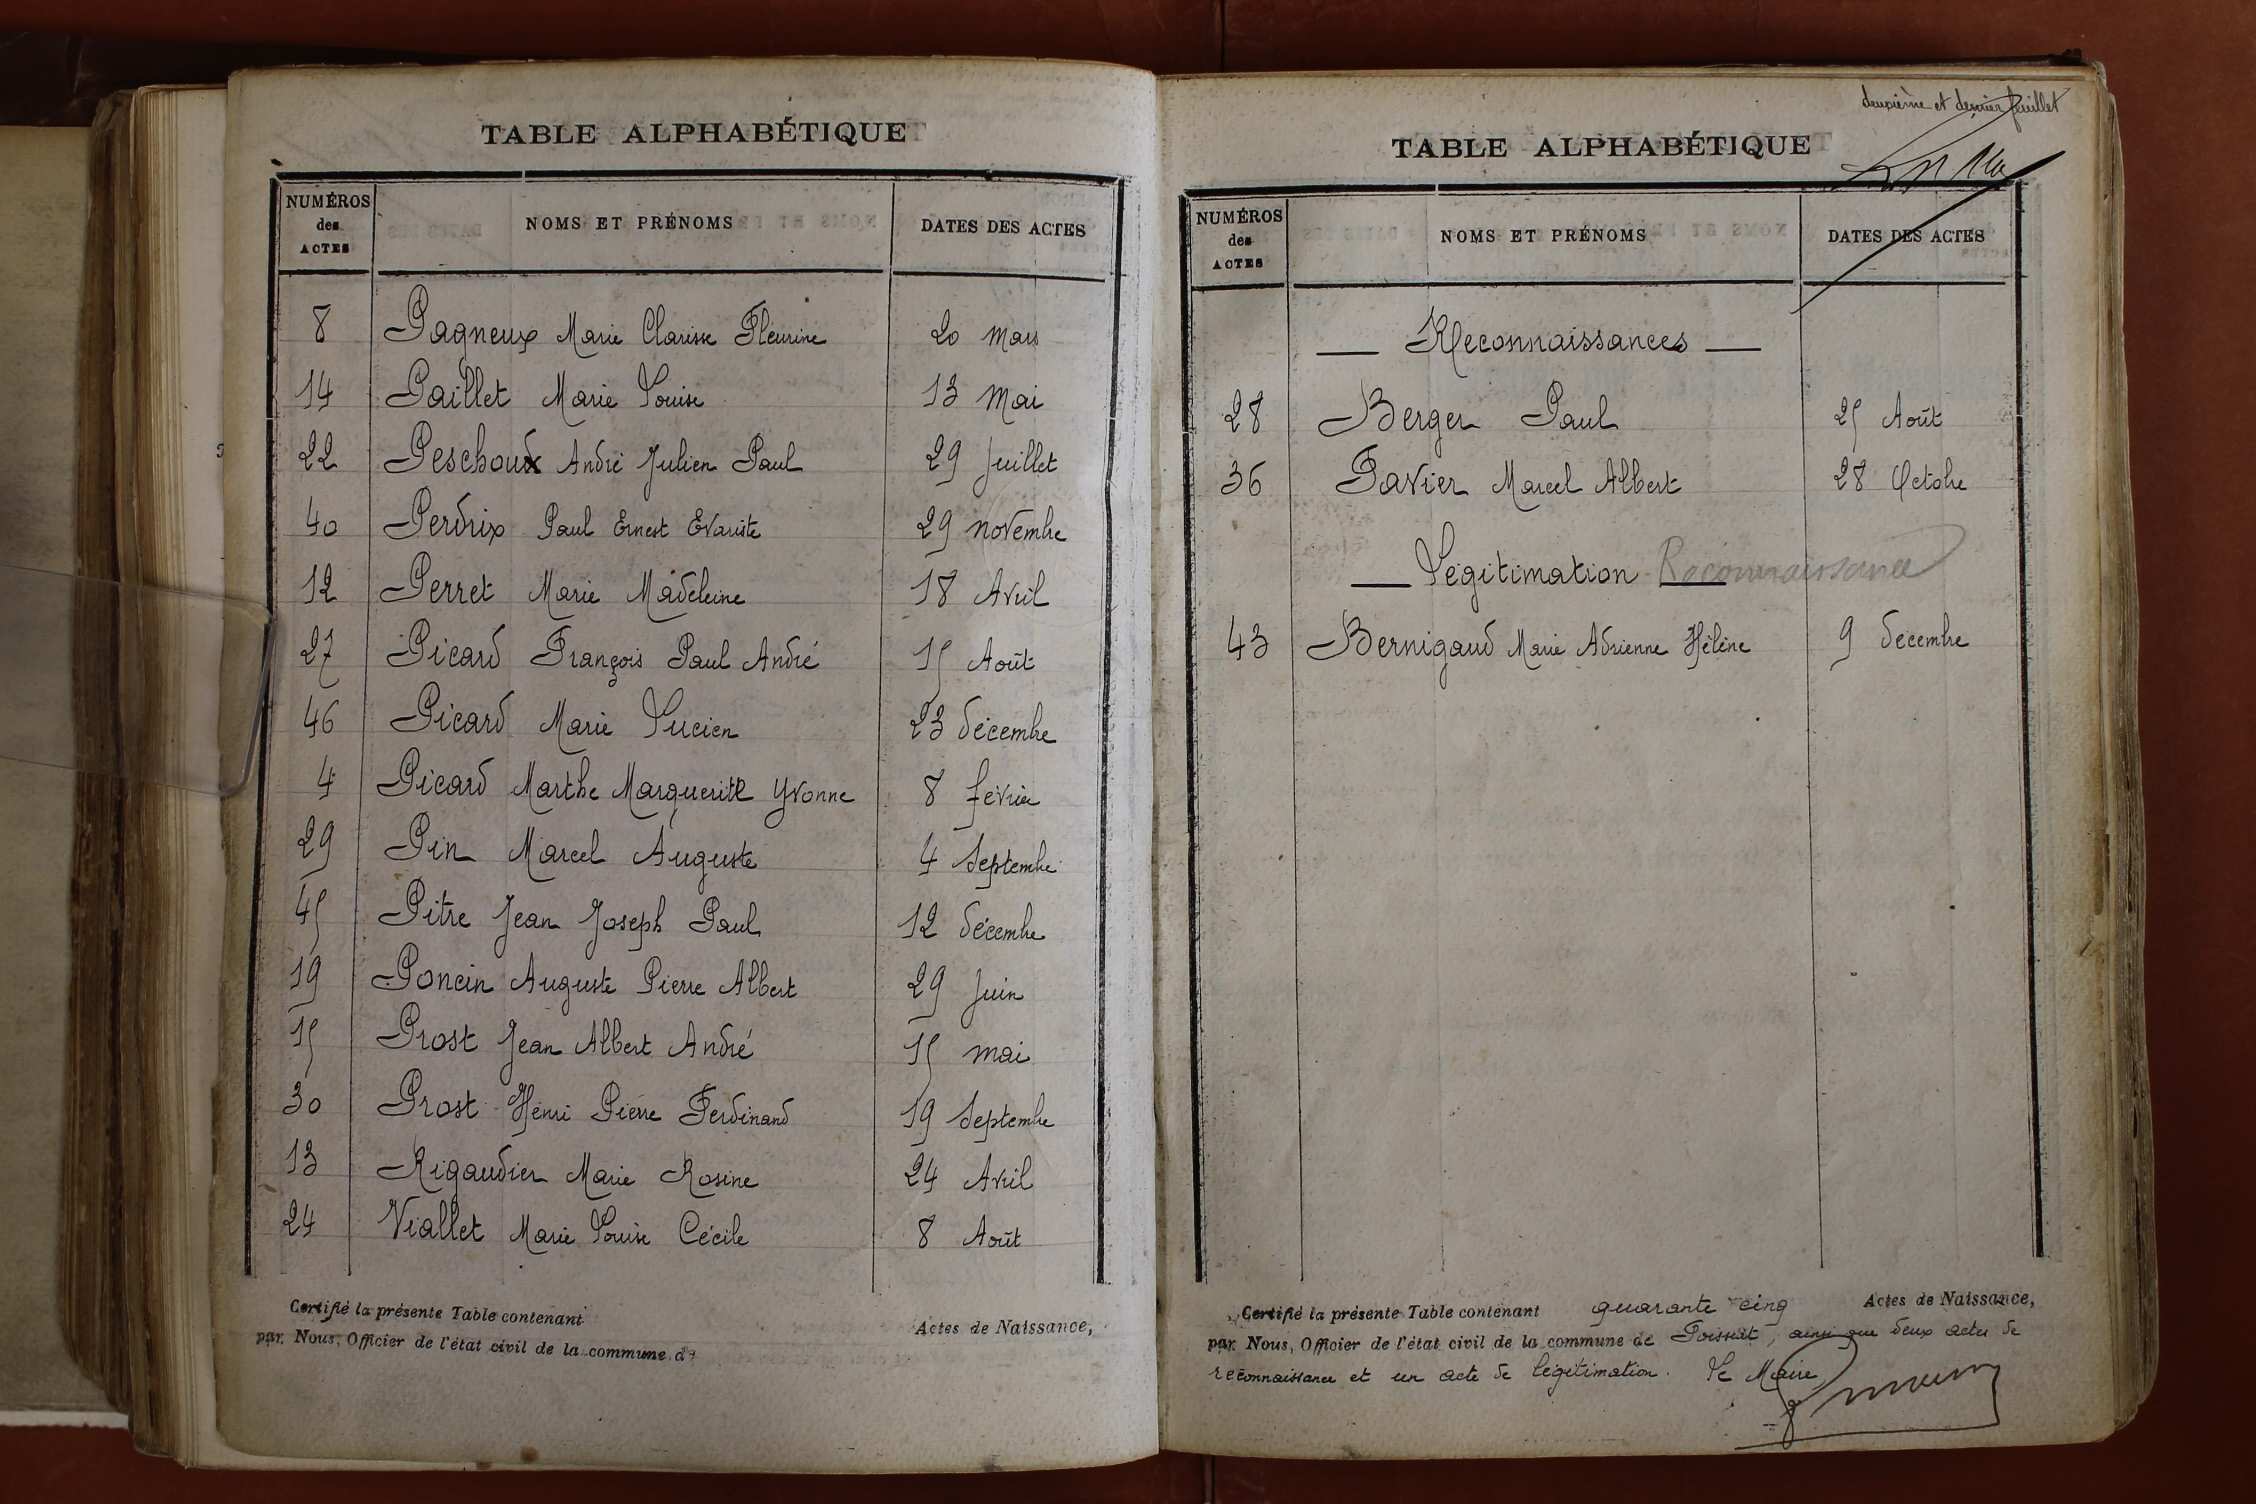 TABLE ALPHABÉTIQUE
NUMÉROS des ACTES NOMS ET PRÉNOMS DATES DES ACTES
8 Pagneux Marie Clarisse Fleurine 20 Mars
14 Paillet Marie Louise 13 Mai
22 Peschoux André Julien Paul 29 Juillet
40 Perdrix Paul Ernest Evariste 29 novembre
12 Perret Marie Madeleine 18 Avril
27 Picard François Paul André 15 Août
46 Picard Marie Lucien 23 décembre
4 Picard Marthe Marguerite Yvonne 8 février
29 Pin Marcel Auguste 4 Septembre
45 Pitre Jean Joseph Paul 12 décembre
19 Poncin Auguste Pierre Albert 29 Juin
15 Prost Jean Albert André 15 mai
30 Prost Henri Pierre Ferdinand 19 Septembre
13 Rigaudier Marie Rosine 24 Avril
24 Viallet Marie Louise Cécile 8 Août
Certifié la présente Table contenant Actes de Naissance,
par Nous, Officier de l'état civil de la commune de
deuxième et dernier feuillet
TABLE ALPHABÉTIQUE
NUMÉROS des ACTES NOMS ET PRÉNOMS DATES DES ACTES
Reconnaissances
28 Berger Paul 25 Août
36 Pavier Marcel Albert 28 Octobre
Légitimation Reconnaissance
43 Bernigaud Marie Adrienne Hélène 9 décembre
Certifié la présente Table contenant quarante cinq Actes de Naissance,
par Nous, Officier de l'état civil de la commune de Poisson, ainsi que deux actes de
reconnaissance et un acte de légitimation. Le Maire